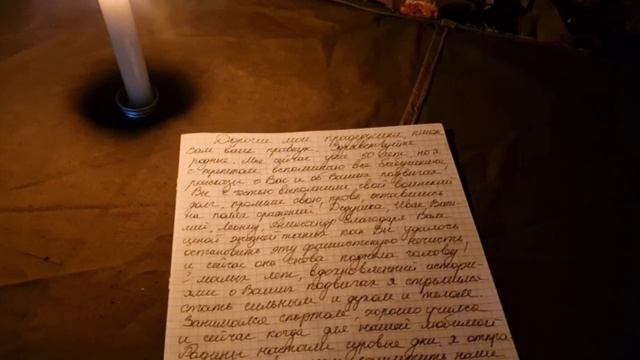 Дорогие мои прадедушки, пишет
Вам ваш правнук. Здравствуйте
родные. Мне сейчас уже 50 лет, но я
с трепетом вспоминаю все бабушкины
рассказы о Вас и об Ваших подвигах!
Вы с честью выполнили свой воинский
долг, пролили свою кровь, оставшись
на полях сражений! Дедушка, Иван, Васи-
лий, Леонид, Александр благодаря Вам,
ценой жизней Вы как Вы удалось
остановить эту фашистскую нечисть
и сейчас она снова подняла голову!
С малых лет, вдохновленный истори-
ями о Ваших подвигах я стремился
стать сильным и духом и телом.
Занимался спортом, хорошо учился
и сейчас когда для нашей любимой
Родины настали суровые дни я отпра